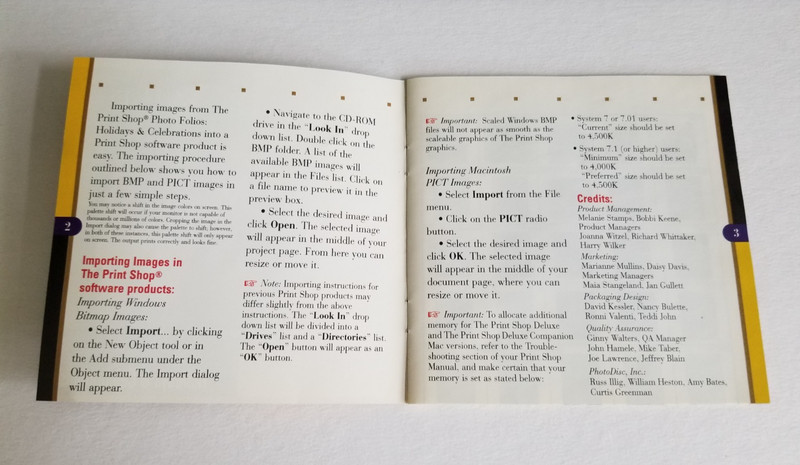 Importing images from The
Print Shop® Photo Folios:
Holidays & Celebrations into a
Print Shop software product is
easy. The importing procedure
outlined below shows you how to
import BMP and PICT images in
just a few simple steps.
You may notice a shift in the image colors on screen. This
palette shift will occur if your monitor is not capable of
thousands or millions of colors. Cropping the image in the
Import dialog may also cause the palette to shift; however,
in both of these instances, this palette shift will only appear
on screen. The output prints correctly and looks fine.
2
Importing Images in
The Print Shop®
software products:
Importing Windows
Bitmap Images:
• Select Import... by clicking
on the New Object tool or in
the Add submenu under the
Object menu. The Import dialog
will appear.
• Navigate to the CD-ROM
drive in the “Look In” drop
down list. Double click on the
BMP folder. A list of the
available BMP images will
appear in the Files list. Click on
a file name to preview it in the
preview box.
• Select the desired image and
click Open. The selected image
will appear in the middle of your
project page. From here you can
resize or move it.
☞ Note: Importing instructions for
previous Print Shop products may
differ slightly from the above
instructions. The “Look In” drop
down list will be divided into a
“Drives” list and a “Directories” list.
The “Open” button will appear as an
“OK” button.
☞ Important: Scaled Windows BMP
files will not appear as smooth as the
scaleable graphics of The Print Shop
graphics.
Importing Macintosh
PICT Images:
• Select Import from the File
menu.
• Click on the PICT radio
button.
• Select the desired image and
click OK. The selected image
will appear in the middle of your
document page, where you can
resize or move it.
☞ Important: To allocate additional
memory for The Print Shop Deluxe
and The Print Shop Deluxe Companion
Mac versions, refer to the Trouble-
shooting section of your Print Shop
Manual, and make certain that your
memory is set as stated below:
• System 7 or 7.01 users:
“Current” size should be set
to 4,500K
• System 7.1 (or higher) users:
“Minimum” size should be set
to 4,000K
“Preferred” size should be set
to 4,500K
Credits:
Product Management:
Melanie Stamps, Bobbi Keene,
Product Managers
Joanna Witzel, Richard Whittaker,
Harry Wilker
3
Marketing:
Marianne Mullins, Daisy Davis,
Marketing Managers
Maia Stangeland, Jan Gullett
Packaging Design:
David Kessler, Nancy Bulette,
Ronni Valenti, Teddi John
Quality Assurance:
Ginny Walters, QA Manager
John Hamele, Mike Taber,
Joe Lawrence, Jeffrey Blain
PhotoDisc, Inc.:
Russ Illig, William Heston, Amy Bates,
Curtis Greenman